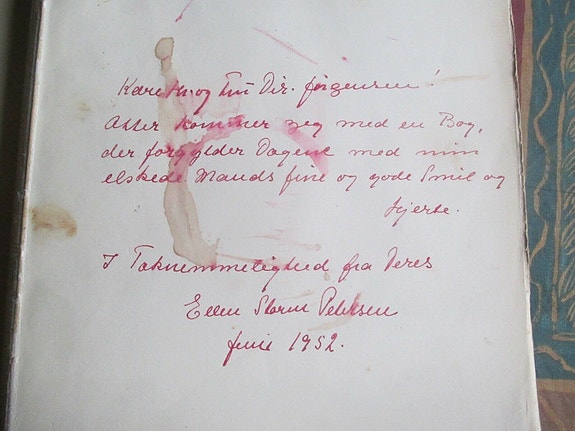 Kære Hr. og Fru Dir. Jørgensen!
Atter kommer jeg med en Bog,
der forgylder Dagene med min
elskede Mands fine og gode Smil og
Hjerte.
I Taknemmelighed fra Deres
Ellen Storm Petersen
Juni 1952.